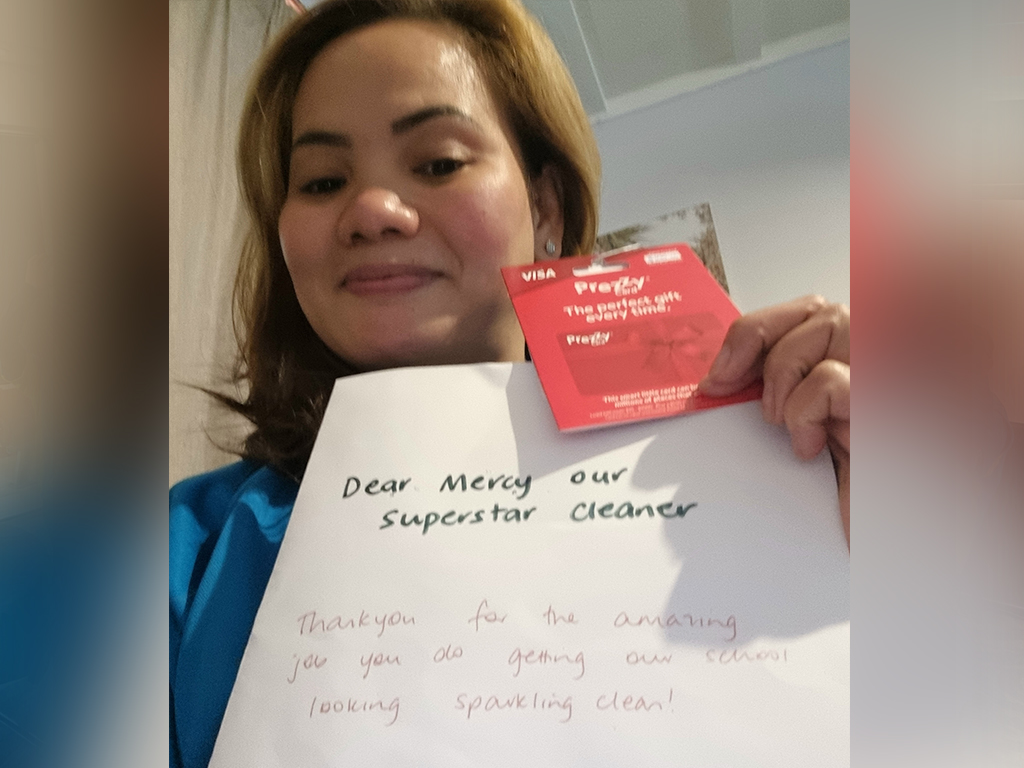 VISA
Prezzy
Card
The perfect gift
every time.
Prezzy
Card
This smart little card can be
millions of places that
Dear Mercy our
superstar cleaner
Thankyou for the amazing
job you do getting our school
looking sparkling clean!